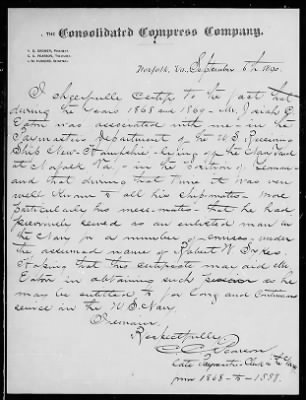 The Consolidated Compress Company.
Norfolk, Va. September 6th 1890.
I cheerfully certify to the fact that
during the years 1868 and 1869 - Mr. Isaiah E.
Eaton was associated with me - in the
Paymasters Department of the U.S. Receiving
Ship New Hampshire - lying off the Navy Yard
at Norfolk Va. - in the
and that during that time it was very
well known to all his shipmates - more
particularly his mess-mates - that he had
previously served as an enlisted man in
the Navy for a number of under
the assumed name of Robert W.
Hoping that this certificate may aid Mr.
Eaton in obtaining such pension as he
may be entitled to for long and continuous
service in the U.S. Navy.
I remain
Respectfully
Pearson
Late Paymaster's Clerk U.S. Navy
from 1868 - to - 1888.